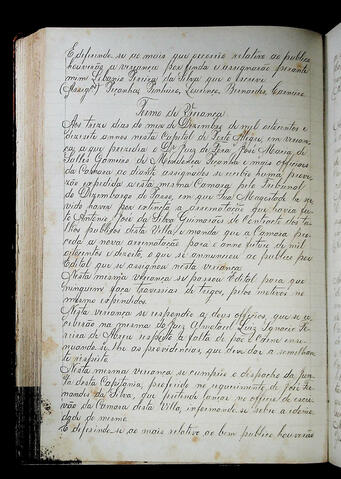 E diferindo se ao mais que occorrio relativo ao publico
houverão a vereança por finda e assignarão perante
mim Libanio Pereira da Silva que o escrevi
(Assigº) Peçanha, Lourenco, Bernardes Carneiro.
Termo de Vereança
Aos treze dias do mez de Dezembro de mil oitocentos e
dezisete annos nesta Capital de Porto Alegre, em verean
ça a que prezedia o Dr Juiz de Fóra José Maria de
Salles Gameiro de Mendonça Peçanha e mais officiaes
da Camara ao diante assignados se recebeo huma provi
zão expedida a esta mesma Camara pelo Tribunal
do Dezembargo do Paço, em que Sua Magestade he ser
vido haver por extincta a arrematação que havia fei
to Antonio José da Silva Guimarães do Contracto dos ta
lhos publicos desta Villa, e manda que a Camara pro
ceda a nova arrematação para o anno futuro de mil
oitocentos e dezoito, o que se annunciou ao publico por
Edital que se assignou nesta Vereança.
Nesta mesma vereança se passou Edital para que
ninguem faça travessias de trigos, pelos motivos no
mesmo expendidos.
Nesta vereança se respondeo a dous officios, que se re
ceberão na mesma do Juiz Almotacel Luiz Ignacio Pe
reira de Abreu respeito a falta de pão e Carne insi
nuando se lhe as providencias, que deu dar a semelhan
te respeito.
Nesta mesma vereança se cumprio o despacho da Jun
ta desta Capitania, proferido no requerimento de José Fer
nandes da Silva, que pretende lançar no officio de escri
vão da Camara desta Villa, informando se sobre a idonei
dade do mesmo.
E diferindo se ao mais relativo ao bem publico houverão